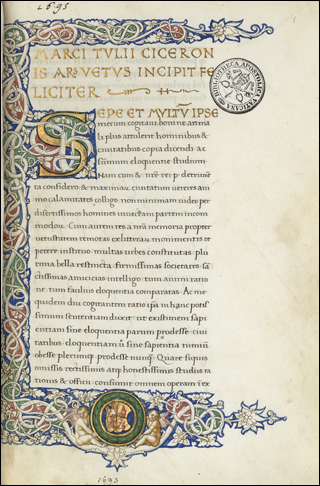 1695
MARCI TULII CICERON
IS ARS VETUS INCIPIT FE
LICITER
SEPE ET MULTŨ IPSE
mecum cogitaui bonine an ma
li plus attulerit hominibus &
ciuitatibus copia dicendi ac
summum eloquentie studium.
Nam cum & nr̄e rei p detrimē
ta considero & maximar̄ ciuitatum ueteres ani
mo calamitates colligo non minimam uideo per
disertissimos homines inuectam partem incom
modor̄. Cum autem res a nr̄a memoria propter
uetustatem remotas ex litterar̄ monumentis re
petere instituo multas urbes constitutas plu
rima bella restincta firmissimas societates sā
ctissimas amicicias intelligo tum animi ratio
ne tum facilius eloquentia comparatas. Ac me
quidem diu cogitantem ratio ipa in hanc potis
simum sententiam ducit ut existimem sapi
entiam sine eloquentia parum prodesse ciui
tatibus eloquentiam ũ sine sapientia nimiũ
obesse plerumq; prodesse nunq̄. Quare siquis
omissis rectissimis atq; honestissimis studiis ra
tionis & officii consumit omnem operam ī ex
BIBLIOTHECA APOSTOLICA VATICANA
1695